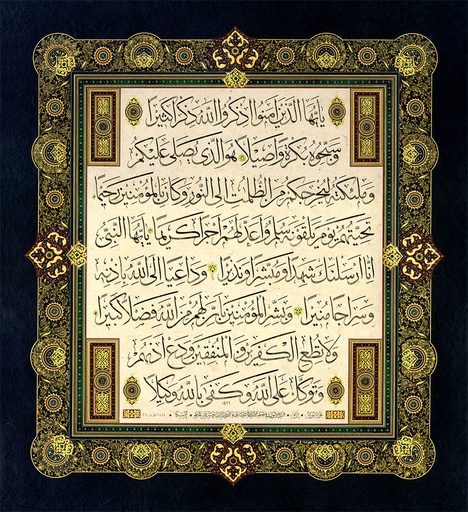 يا أيها الذين آمنوا اذكروا الله ذكرا كثيرا
وسبحوه بكرة وأصيلا هو الذي يصلي عليكم
وملئكته ليخرجكم من الظلمت إلى النور وكان بالمؤمنين رحيما
تحيتهم يوم يلقونه سلم وأعد لهم أجرا كريما يا أيها النبي
إنا أرسلنك شهدا ومبشرا ونذيرا وداعيا إلى الله بإذنه
وسراجا منيرا وبشر المؤمنين بأن لهم من الله فضلا كبيرا
ولا تطع الكفرين والمنفقين ودع أذىهم
وتوكل على الله وكفى بالله وكيلا